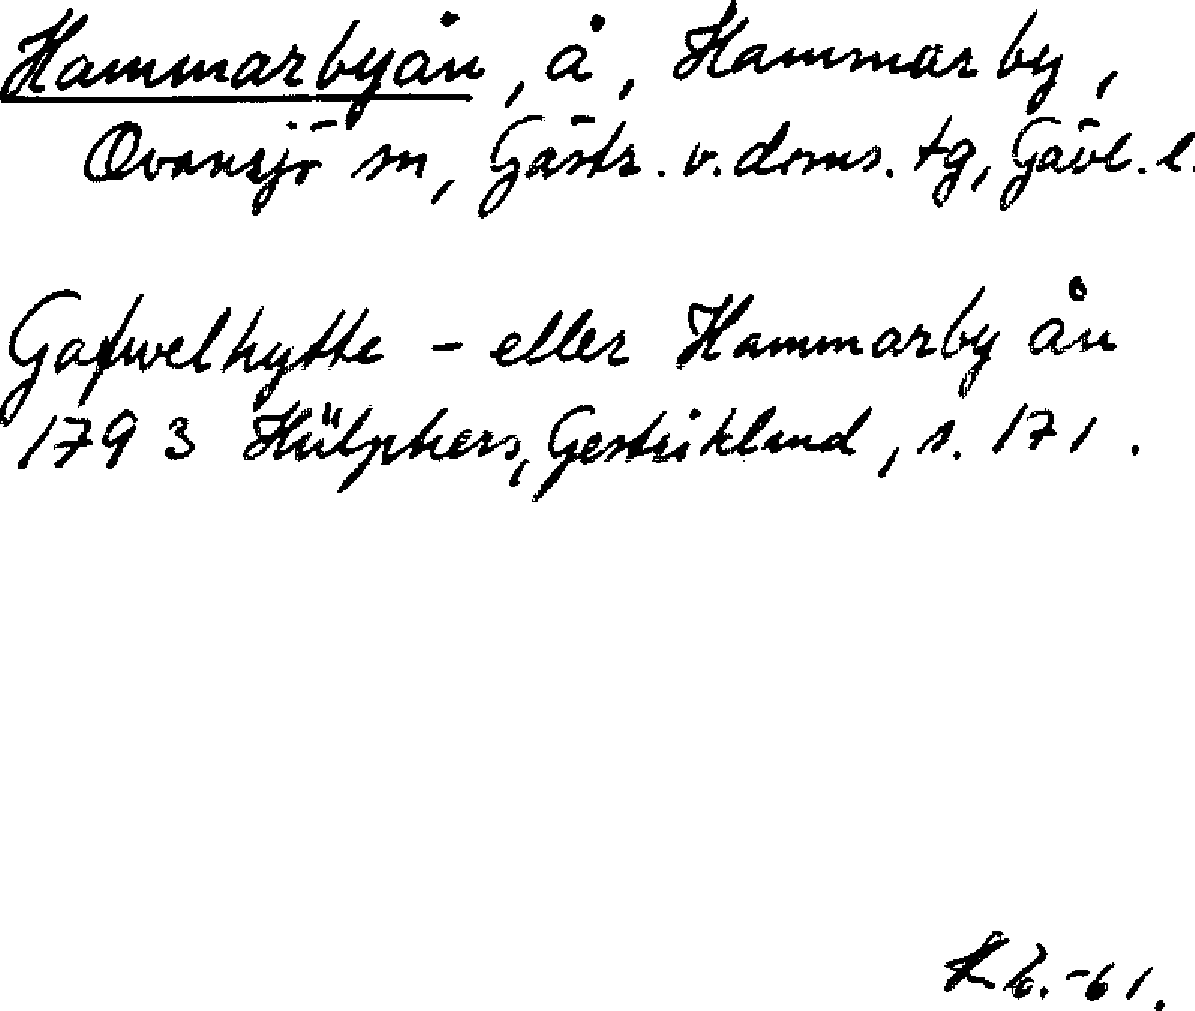 Hammarbyån, å, Hammarby,
Ovansjö sn, Gästr. v. doms. tg, Gävl. l.
Gafwelhytte - eller Hammarby ån
1793 Hülphers, Gestrikland, s. 171.
-61.